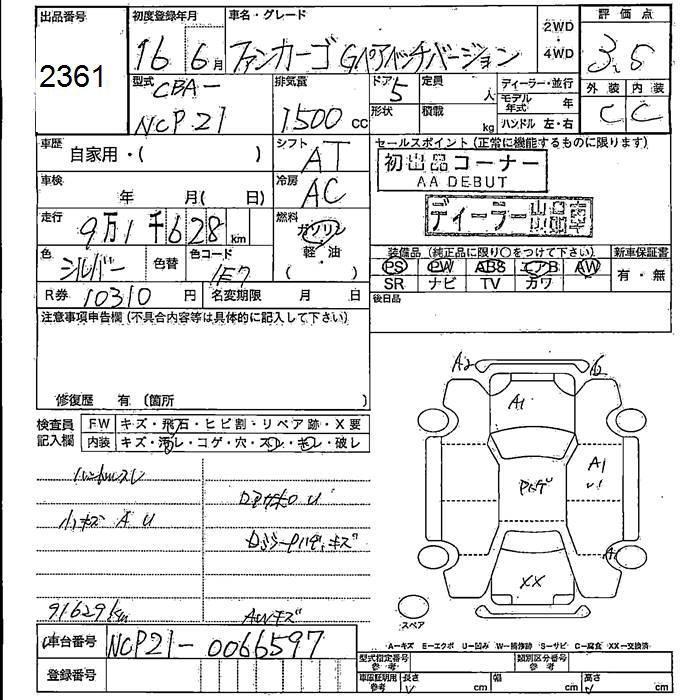 出品番号 初度登録年月 車名・グレード 2WD ・ 4WD 評価点
2361 16年6月 ファンカーゴ Gペアバッチバージョン 3.5
型式 CBA- 排気量 ドア 5 定員 人 ディーラー・並行 外装 内装
NCP21 1500 cc 形状 積載 kg モデル年式 年 C C
ハンドル 左・右
車歴 自家用・( ) シフト AT セールスポイント(正常に機能するものに限ります)
初出品コーナー
AA DEBUT
車検 年 月( 日) 冷房 AC
ディーラー出品車
走行 9万1千628km 燃料 ガソリン
軽・油
( )
色 シルバー 色替 色コード 1E7 装備品(純正品に限り○をつけて下さい) 新車保証書
PS PW ABS エアB AW 有・無
SR ナビ TV カワ
R券 10310円 名変期限 月 日 後日品
注意事項申告欄(不具合内容等は具体的に記入して下さい)
修復歴 有(箇所 )
検査員記入欄 FW キズ・飛石・ヒビ割・リペア跡・X要
内装 キズ・汚レ・コゲ・穴・スレ・キレ・破レ
ハンドルスレ
小キズ A U
AWキズ
91629km
A2
A1
A1
XX
スペア
車台番号 NCP21-0066597
登録番号
A−キズ E−エクボ U−凹み W−補修跡 S−サビ C−腐食 XX−交換済
型式指定番号 参考 類別区分番号 参考
車庫証明用 参考 長さ cm 幅 cm 高さ cm